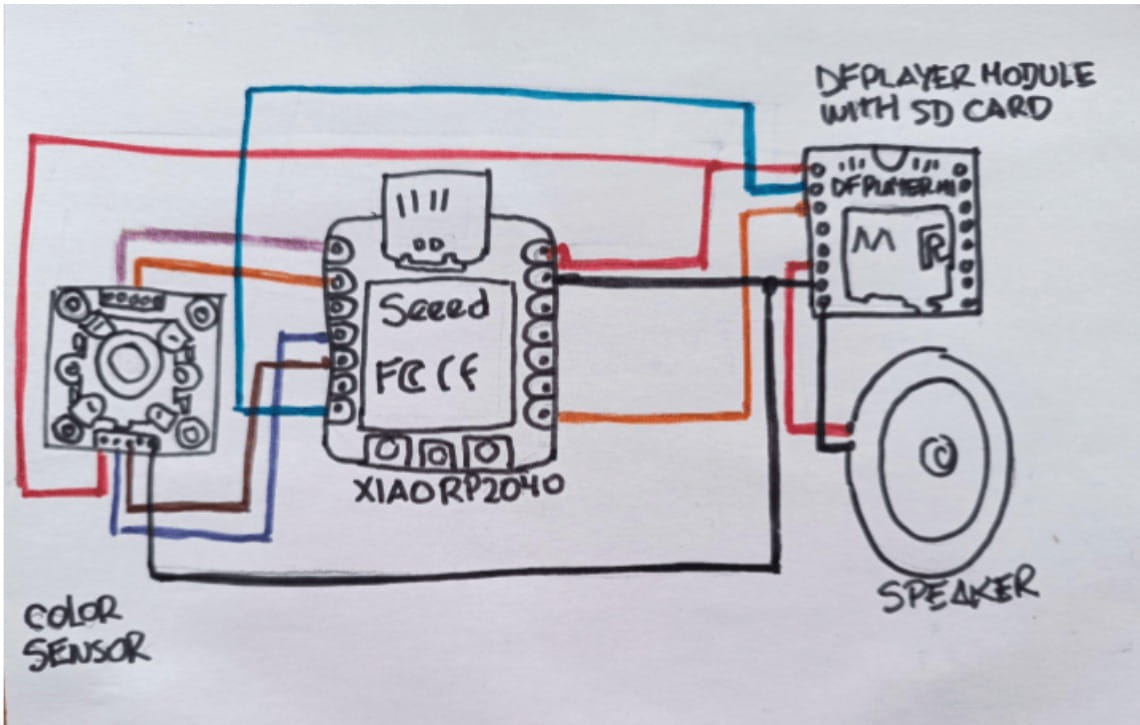 DFPLAYER MODULE
WITH SD CARD
DFPLAYER MINI
Seeed
FC CE
XIAO RP2040
SPEAKER
COLOR
SENSOR